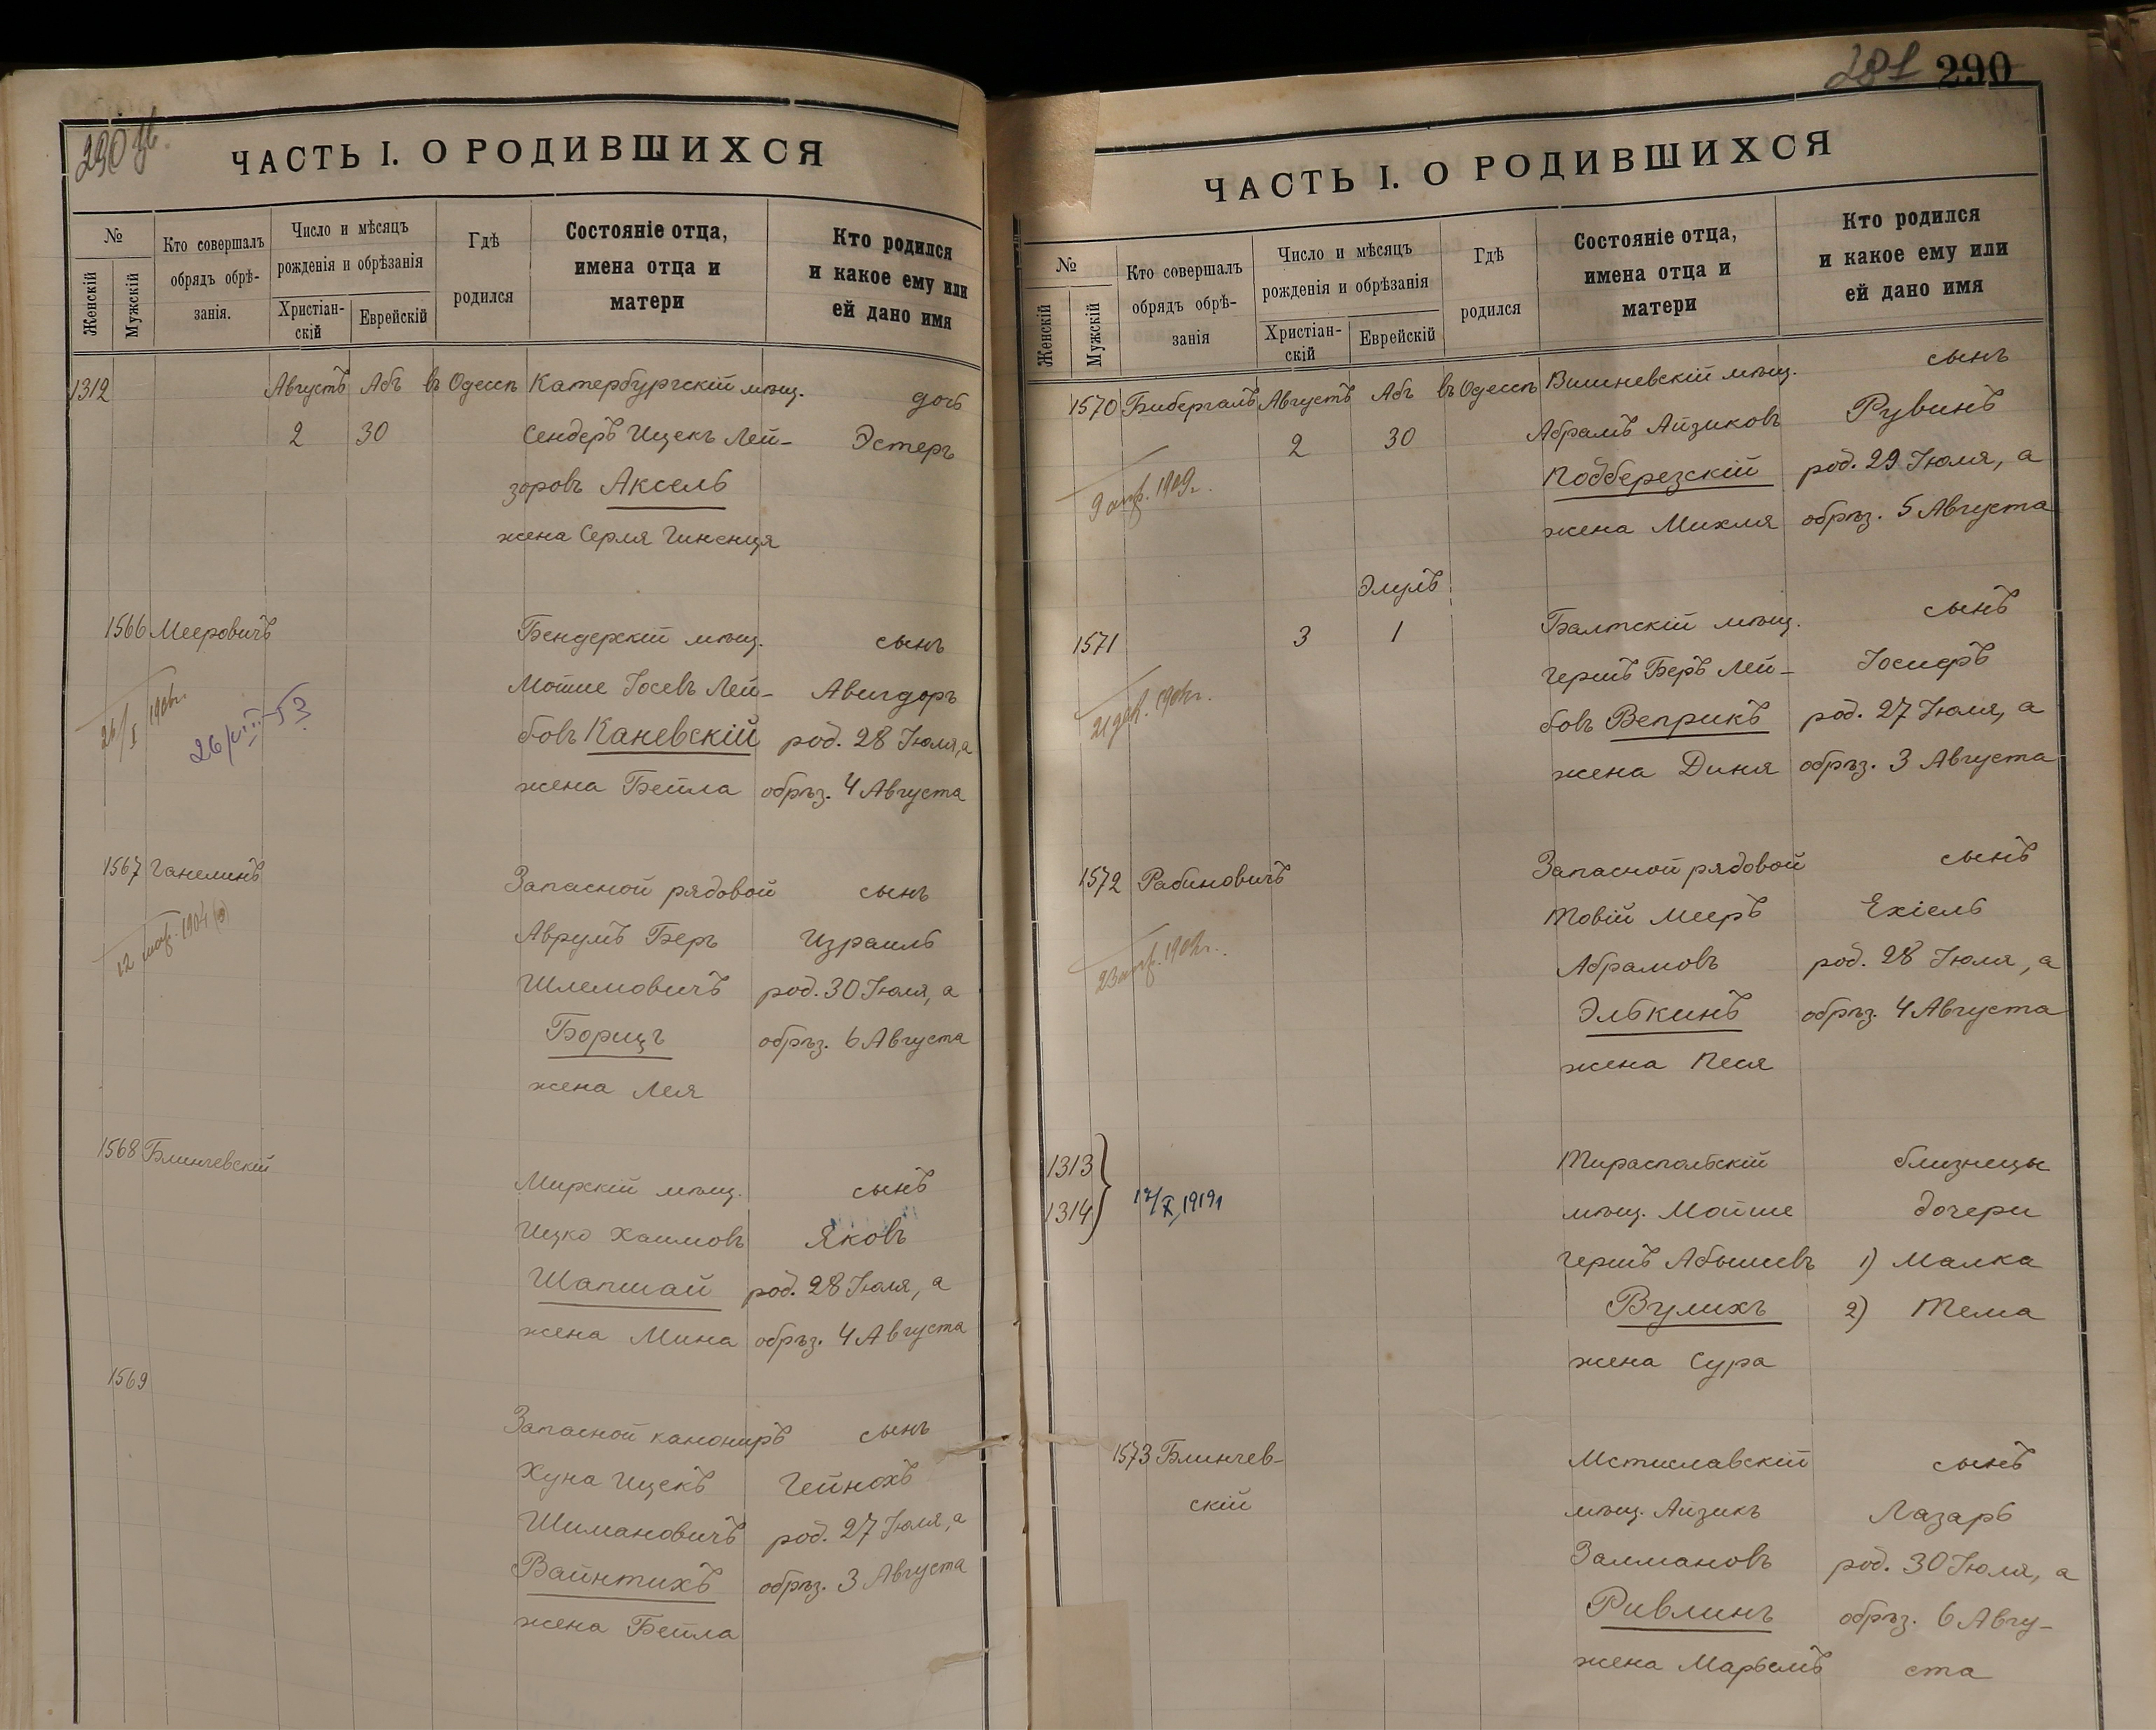 290 об.
ЧАСТЬ I. О РОДИВШИХСЯ
№
Женскій
Мужскій
Кто совершалъ
обрядъ обрѣ-
занія.
Число и мѣсяцъ
рожденія и обрѣзанія
Христіан-
скій
Еврейскій
Гдѣ
родился
Состояніе отца,
имена отца и
матери
Кто родился
и какое ему или
ей дано имя
1312 Августъ Абъ въ Одессѣ Катербургскій мѣщ. дочь
2 30 Сендеръ Ицекъ Лей- Эстеръ
зоровъ Аксель
жена Серля Гинення
1566 Мееровичъ Бендерскій мѣщ. сынъ
Мошие Іосевъ Лей- Авигдоръ
бовъ Каневскій род. 28 Іюля, а
26/I 1906г.
26/VIII-53
жена Бейла обрѣз. 4 Августа
1567 Ганелинъ Запасной рядовой сынъ
Аврумъ Беръ Израиль
12 1904
Шлемовичъ род. 30 Іюля, а
Борищъ обрѣз. 6 Августа
жена Лея
1568 Блинчевскій Мирскій мѣщ. сынъ
Ицко Хаимовъ Яковъ
Шапшай род. 28 Іюля, а
жена Мина обрѣз. 4 Августа
1569 Запасной канониръ сынъ
Хуна Ицекъ Гейнохъ
Шимановичъ род. 27 Іюля, а
Вайнтихъ обрѣз. 3 Августа
жена Бейла
281 290
ЧАСТЬ I. О РОДИВШИХСЯ
№
Женскій
Мужскій
Кто совершалъ
обрядъ обрѣ-
занія
Число и мѣсяцъ
рожденія и обрѣзанія
Христіан-
скій
Еврейскій
Гдѣ
родился
Состояніе отца,
имена отца и
матери
Кто родился
и какое ему или
ей дано имя
1570 Бибергалъ Августъ Абъ въ Одессѣ Вишневскій мѣщ. сынъ
2 30 Абрамъ Айзиковъ Рувинъ
9 апр. 1909г.
Подберезскій род. 29 Іюля, а
жена Михля обрѣз. 5 Августа
Элулъ
1571 3 1 Балтскій мѣщ. сынъ
Гершъ Беръ Лей- Іосифъ
21 дек. 1904г.
бовъ Веприкъ род. 27 Іюля, а
жена Диня обрѣз. 3 Августа
1572 Рабиновичъ Запасной рядовой сынъ
Товій Мееръ Ехіель
23 апр.
Абрамовъ род. 28 Іюля, а
Элькинъ обрѣз. 4 Августа
жена Песя
1313 Тираспольскій близнецы
1314 17/X 1919г мѣщ. Мошие дочери
Гершъ Абышевъ 1) Малка
Вулихъ 2) Тема
жена Сура
1573 Блинчев- Мстиславскій сынъ
скій мѣщ. Айзикъ Лазарь
Залмановъ род. 30 Іюля, а
Ривлинъ обрѣз. 6 Авгу-
жена Марьемъ ста